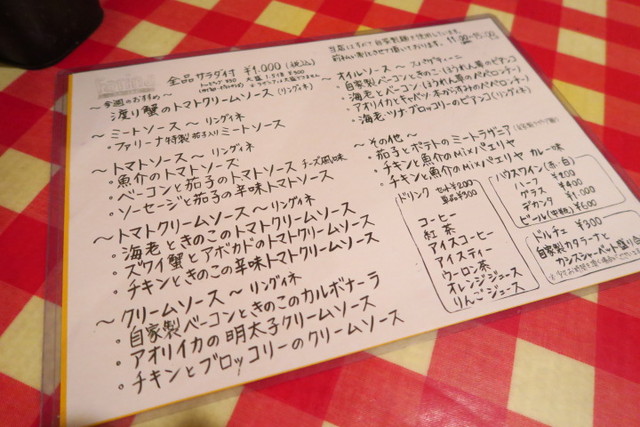 全品 サラダ付 ¥1,000(税込)
〜今週のおすすめ〜
渡り蟹のトマトクリームソース(リングイネ)
〜ミートソース〜 リングイネ
・ファリーナ特製 茄子入りミートソース
〜トマトソース〜 リングイネ
・魚介のトマトソース
・ベーコンと茄子のトマトソース チーズ風味
・ソーセージと茄子の辛味トマトソース
〜トマトクリームソース〜リングイネ
・海老ときのこのトマトクリームソース
・ズワイ蟹とアボカドのトマトクリームソース
・チキンときのこの辛味トマトクリームソース
〜クリームソース〜 リングイネ
・自家製ベーコンときのこのカルボナーラ
・アオリイカの明太子クリームソース
・チキンとブロッコリーのクリームソース
豆腐以外すべて自家製麺を使用しています。
〜オイルソース〜
・自家製ベーコンときのこ、ほうれん草のペペロンチーノ
・海老とベーコン、ほうれん草のペペロンチーノ
・アオリイカとキャベツ、
・海老、ツナ、ブロッコリーのピアンコ(リングイネ)
〜その他〜
・茄子とポテトのミートラザニア
・チキンと魚介のMixパエリヤ
・チキンと魚介のMixパエリヤ カレー味
ドリンク セット¥200
単品¥300
コーヒー
紅茶
アイスコーヒー
アイスティー
ウーロン茶
オレンジジュース
りんごジュース
ハウスワイン(赤・白)
グラス ¥400
デカンタ ¥1,000
ビール(中瓶) ¥600
ドルチェ ¥300
自家製カタラーナと
カシスシャーベット盛り合